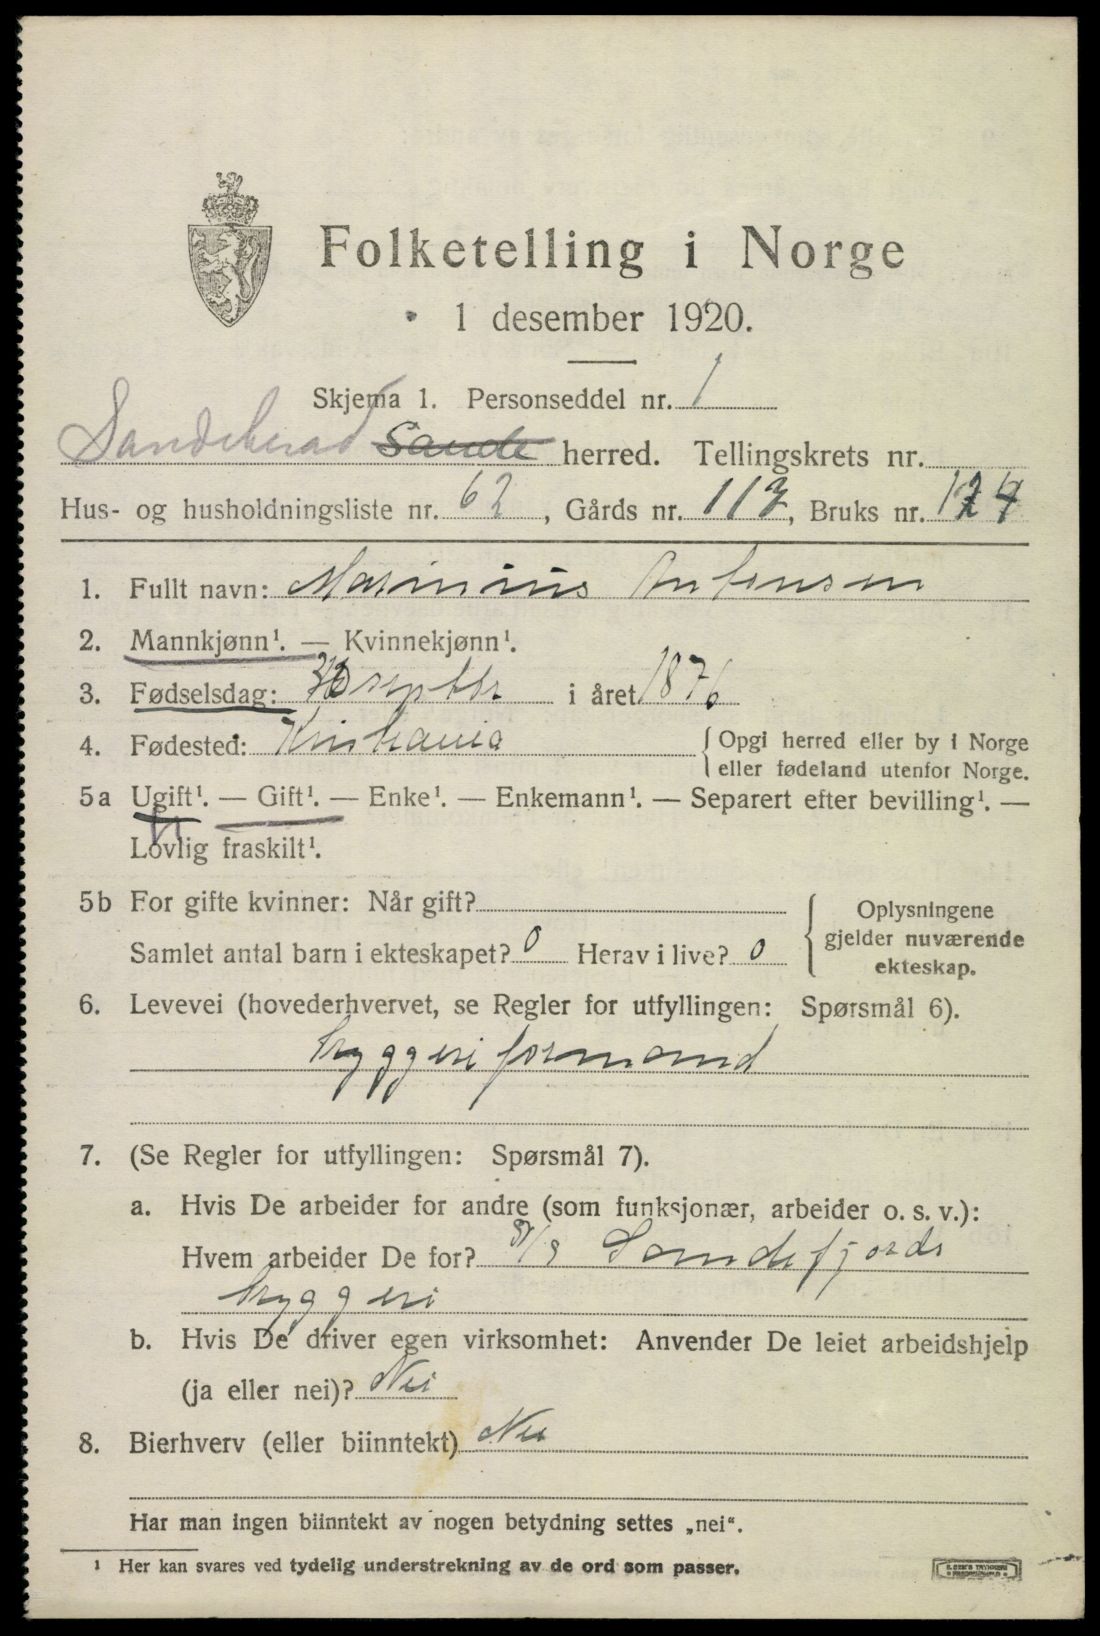 Folketelling i Norge
1 desember 1920.
Skjema 1. Personseddel nr. 1
Sandeherad Sande herred. Tellingskrets nr.
Hus- og husholdningsliste nr. 62, Gårds nr. 112, Bruks nr.
1. Fullt navn: Marinius Antonsen
2. Mannkjønn¹. — Kvinnekjønn¹.
3. Fødselsdag: septbr i året 1876
4. Fødested: Kristiania {Opgi herred eller by i Norge
eller fødeland utenfor Norge.
5a Ugift¹. — Gift¹. — Enke¹. — Enkemann¹. — Separert efter bevilling¹. —
Lovlig fraskilt¹.
5b For gifte kvinner: Når gift? { Oplysningene
gjelder nuværende
Samlet antal barn i ekteskapet? 0 Herav i live? 0
ekteskap.
6. Levevei (hovederhvervet, se Regler for utfyllingen: Spørsmål 6).
bryggeriformand
7. (Se Regler for utfyllingen: Spørsmål 7).
a. Hvis De arbeider for andre (som funksjonær, arbeider o. s. v.):
Hvem arbeider De for? Sandefjords
bryggeri
b. Hvis De driver egen virksomhet: Anvender De leiet arbeidshjelp
(ja eller nei)? Nei
8. Bierhverv (eller biinntekt) Nei
Har man ingen biinntekt av nogen betydning settes „nei“.
¹ Her kan svares ved tydelig understrekning av de ord som passer.